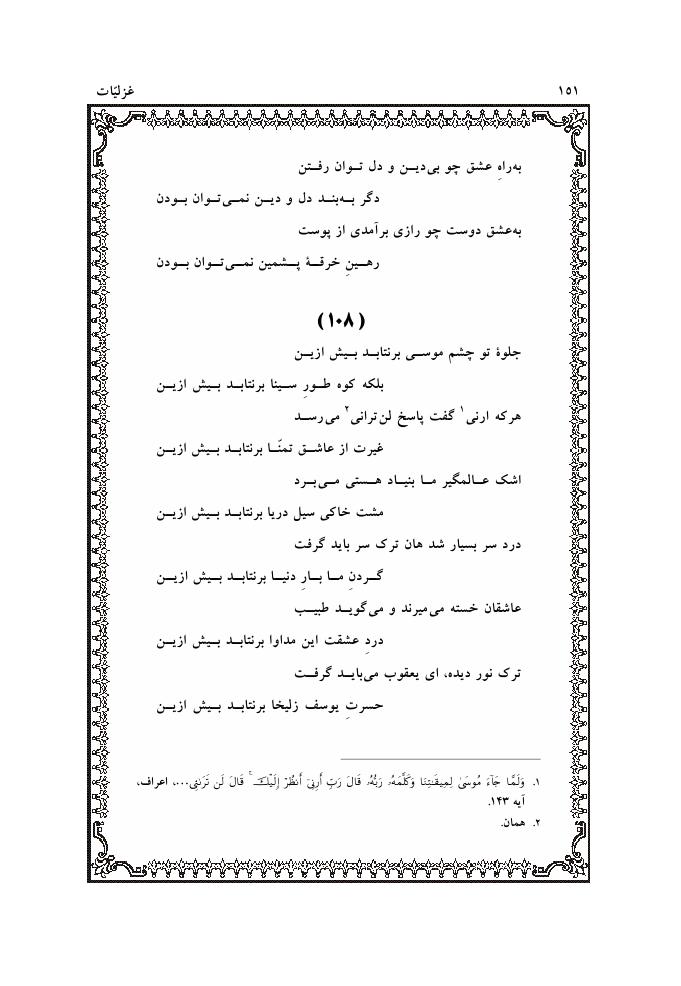 غزلیّات ۱۵۱
به‌راهِ عشق چو بی‌دیـن و دل تـوان رفـتن
دگر بـه‌بنـد دل و دیـن نمـی‌تـوان بـودن
به‌عشق دوست چو رازی برآمدی از پوست
رهـینِ خرقـهٔ پـشمین نمـی‌تـوان بـودن
(۱۰۸)
جلوهٔ تو چشم موسـی برنتابـد بـیش ازیـن
بلکه کوه طـورِ سـینا برنتابـد بـیش ازیـن
هرکه ارنی۱ گفت پاسخ لن‌ترانی۲ می‌رسـد
غیرت از عاشـق تمنّـا برنتابـد بـیش ازیـن
اشک عـالمگیر مـا بنیـاد هـستی مـی‌بـرد
مشت خاکی سیل دریا برنتابـد بـیش ازیـن
درد سر بسیار شد هان ترک سر باید گرفت
گـردنِ مـا بـارِ دنیـا برنتابـد بـیش ازیـن
عاشقان خسته می‌میرند و می‌گویـد طبیـب
دردِ عشقت این مداوا برنتابـد بـیش ازیـن
ترک نور دیده، ای یعقوب می‌بایـد گرفـت
حسرتِ یوسف زلیخا برنتابـد بـیش ازیـن
۱. وَلَمَّا جَآءَ مُوسَىٰ لِمِيقَـٰتِنَا وَكَلَّمَهُۥ رَبُّهُۥ قَالَ رَبِّ أَرِنِىٓ أَنظُرْ إِلَيْكَ ۚ قَالَ لَن تَرَىٰنِى...، اعراف،
آیه ۱۴۳.
۲. همان.